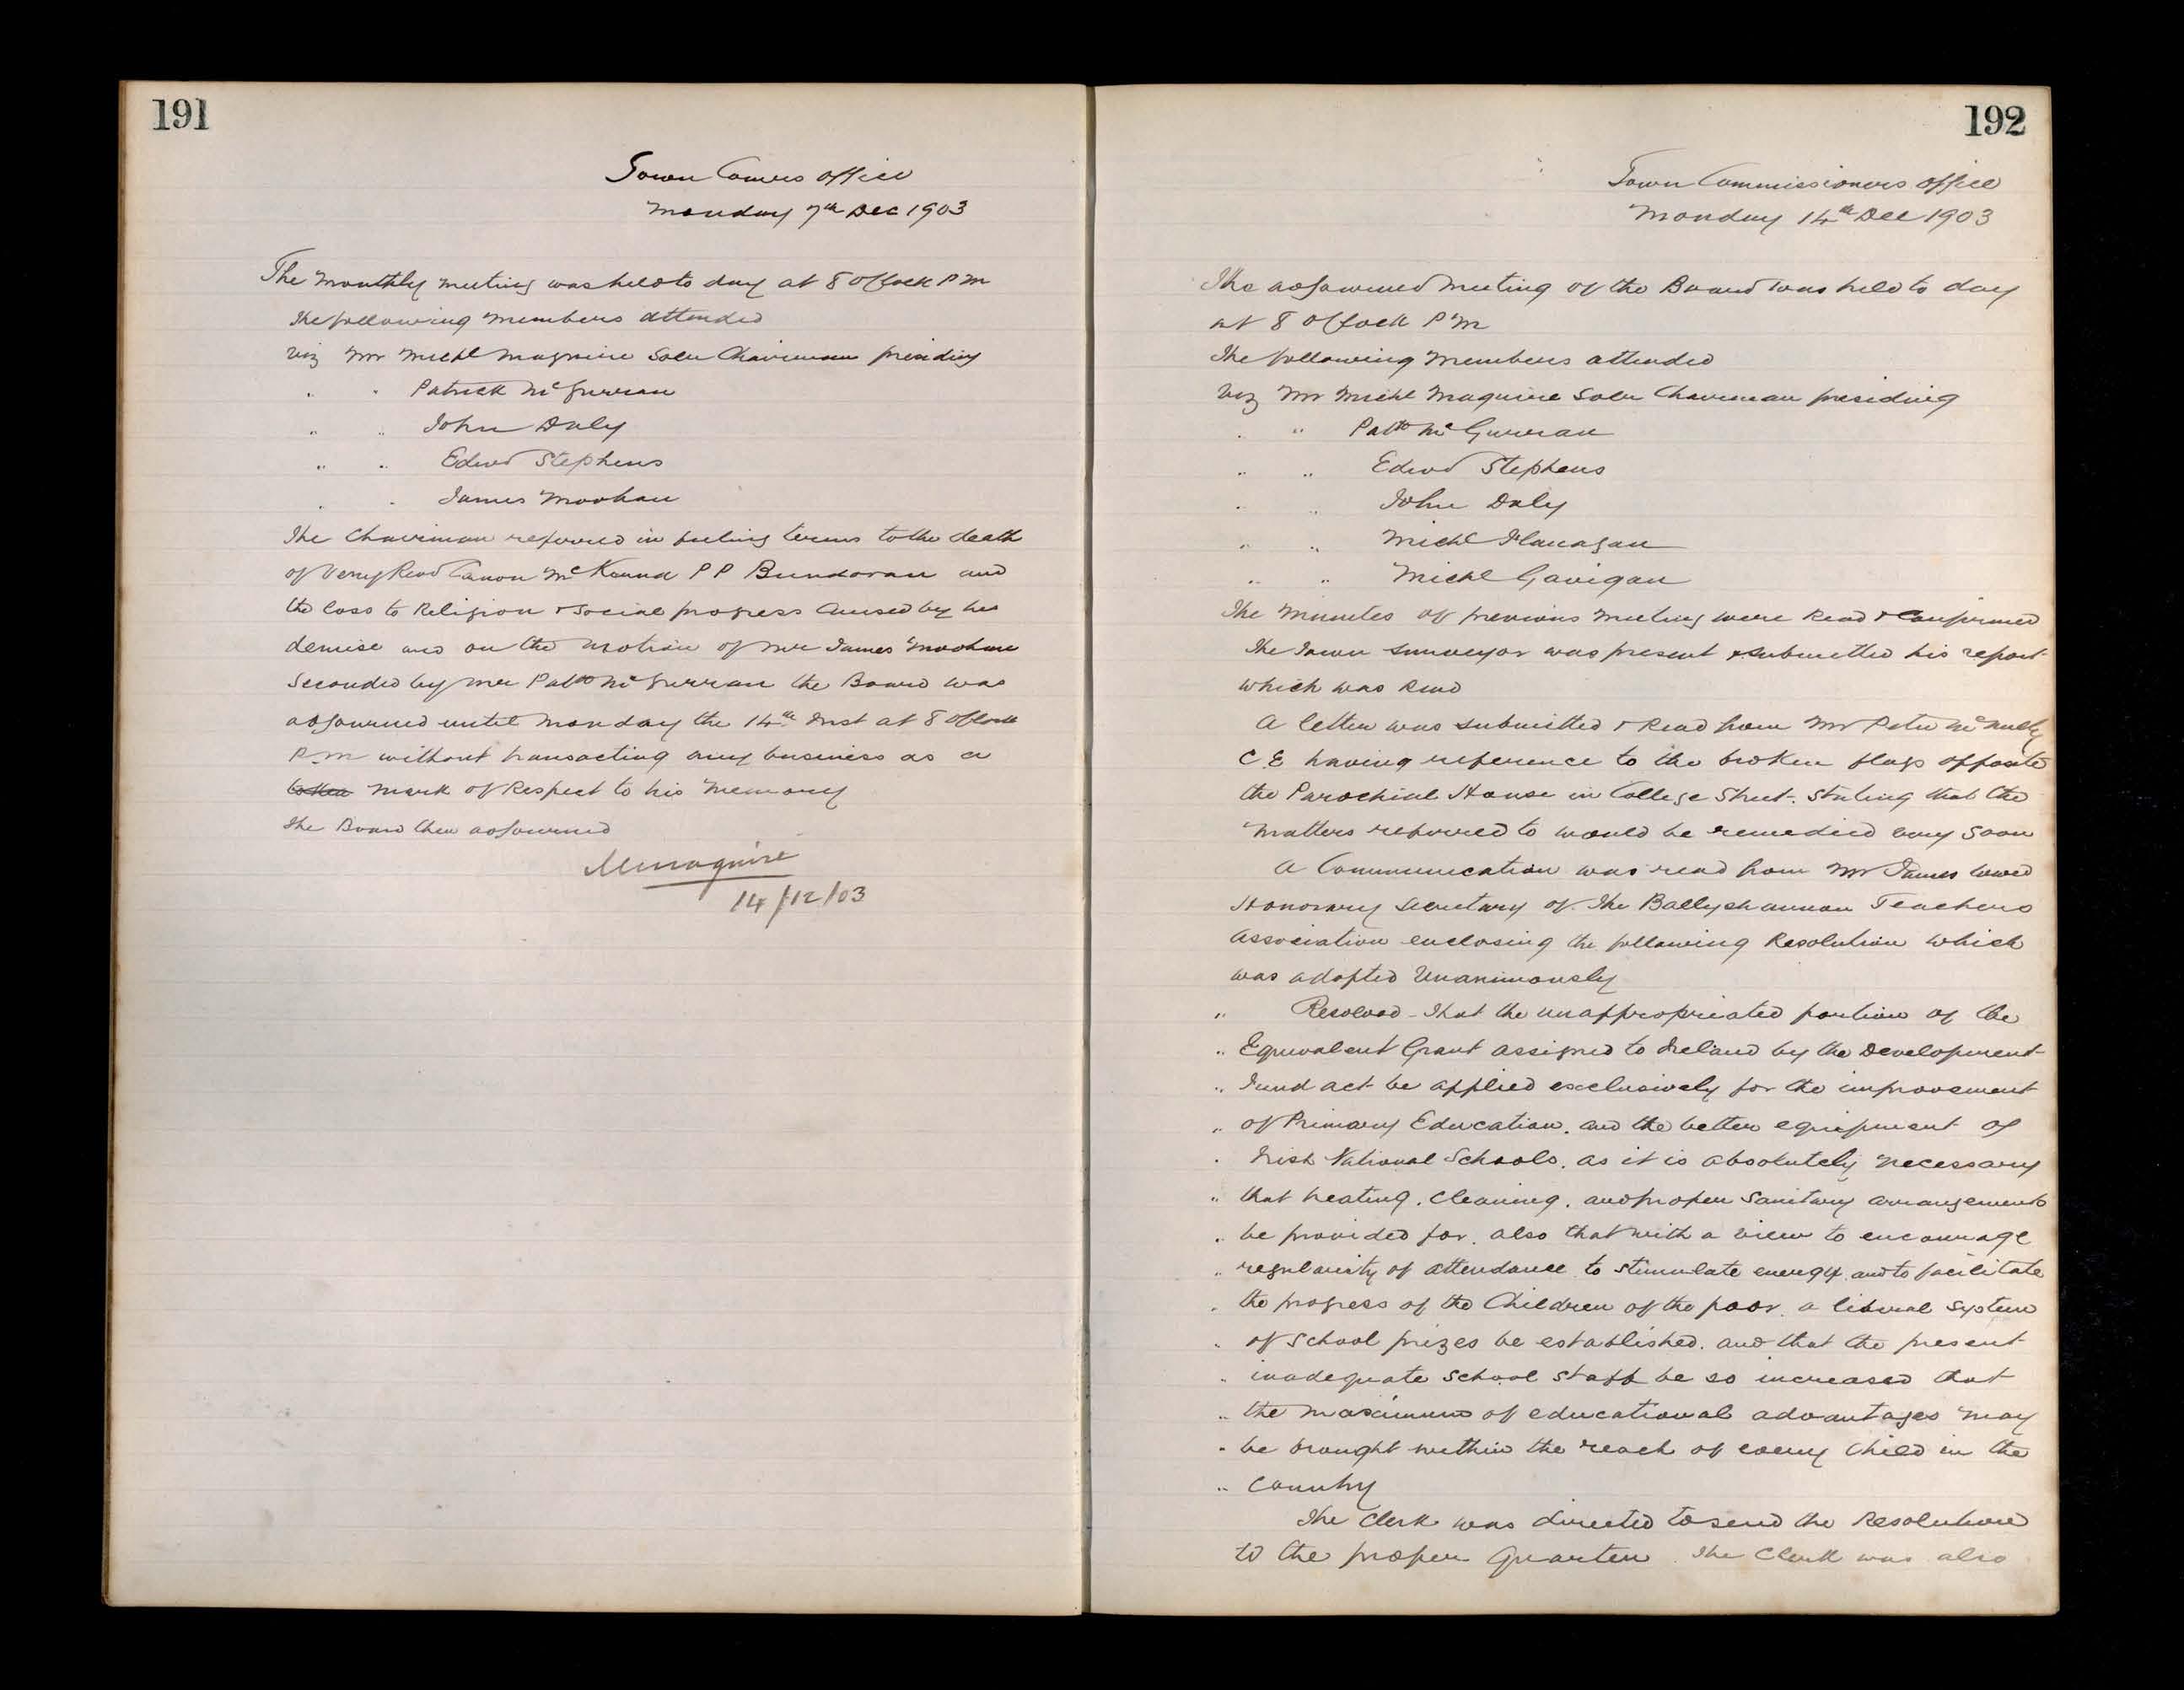 191
Town Comrs office
Monday 7th Dec 1903
The monthly meeting was held to day at 8 OClock P M
The following members attended
viz Mr Michl Maguire Solr Chairman presiding
" " Patrick McGurran
" " John Daly
" " Edwd Stephens
" " James Moohan
The Chairman referred in feeling terms to the death
of Very Revd Canon McKenna P P Bundoran and
the loss to Religion & social progress caused by his
demise and on the motion of Mr James Moohan
Seconded by Mr Patk McGurran the Board was
adjourned until Monday the 14th Inst at 8 OClock
P.m without transacting any business as a
mark of Respect to his Memory
The Board then adjourned
MMaguire
14/12/03
192
Town Commissioners office
Monday 14th Dec 1903
The adjourned meeting of the Board was held to day
at 8 OClock P M
The following members attended
viz Mr Michl Maguire Solr Chairman presiding
" " Patk McGurran
" " Edwd Stephens
" " John Daly
" " Michl Flanagan
" " Michl Gavigan
The minutes of previous meeting were Read & Confirmed
The Town Surveyor was present & submitted his report
which was Read
A letter was submitted & Read from Mr Peter McNulty
C.E having reference to the broken flags opposite
the Parochial House in College Street. Stating that the
matters referred to would be remedied very soon
A Communication was read from Mr James
Honorary Secretary of The Ballyshannon Teachers
Association enclosing the following Resolution which
was adopted Unanimously
" Resolved - That the unappropriated portion of the
" Equivalent Grant assigned to Ireland by the Development
" Fund act be applied exclusively for the improvement
" of Primary Education. and the better equipment of
" Irish National Schools. as it is absolutely necessary
" that heating. Cleaning. and proper Sanitary arrangements
" be provided for. also that with a view to encourage
" regularity of attendance to stimulate energy and to facilitate
" the progress of the Children of the poor. a liberal system
" of School prizes be established. and that the present
" inadequate School staff be so increased that
" the maximum of educational advantages may
" be brought within the reach of every child in the
" Country
The Clerk was directed to send the Resolution
to the proper Quarter. The Clerk was also